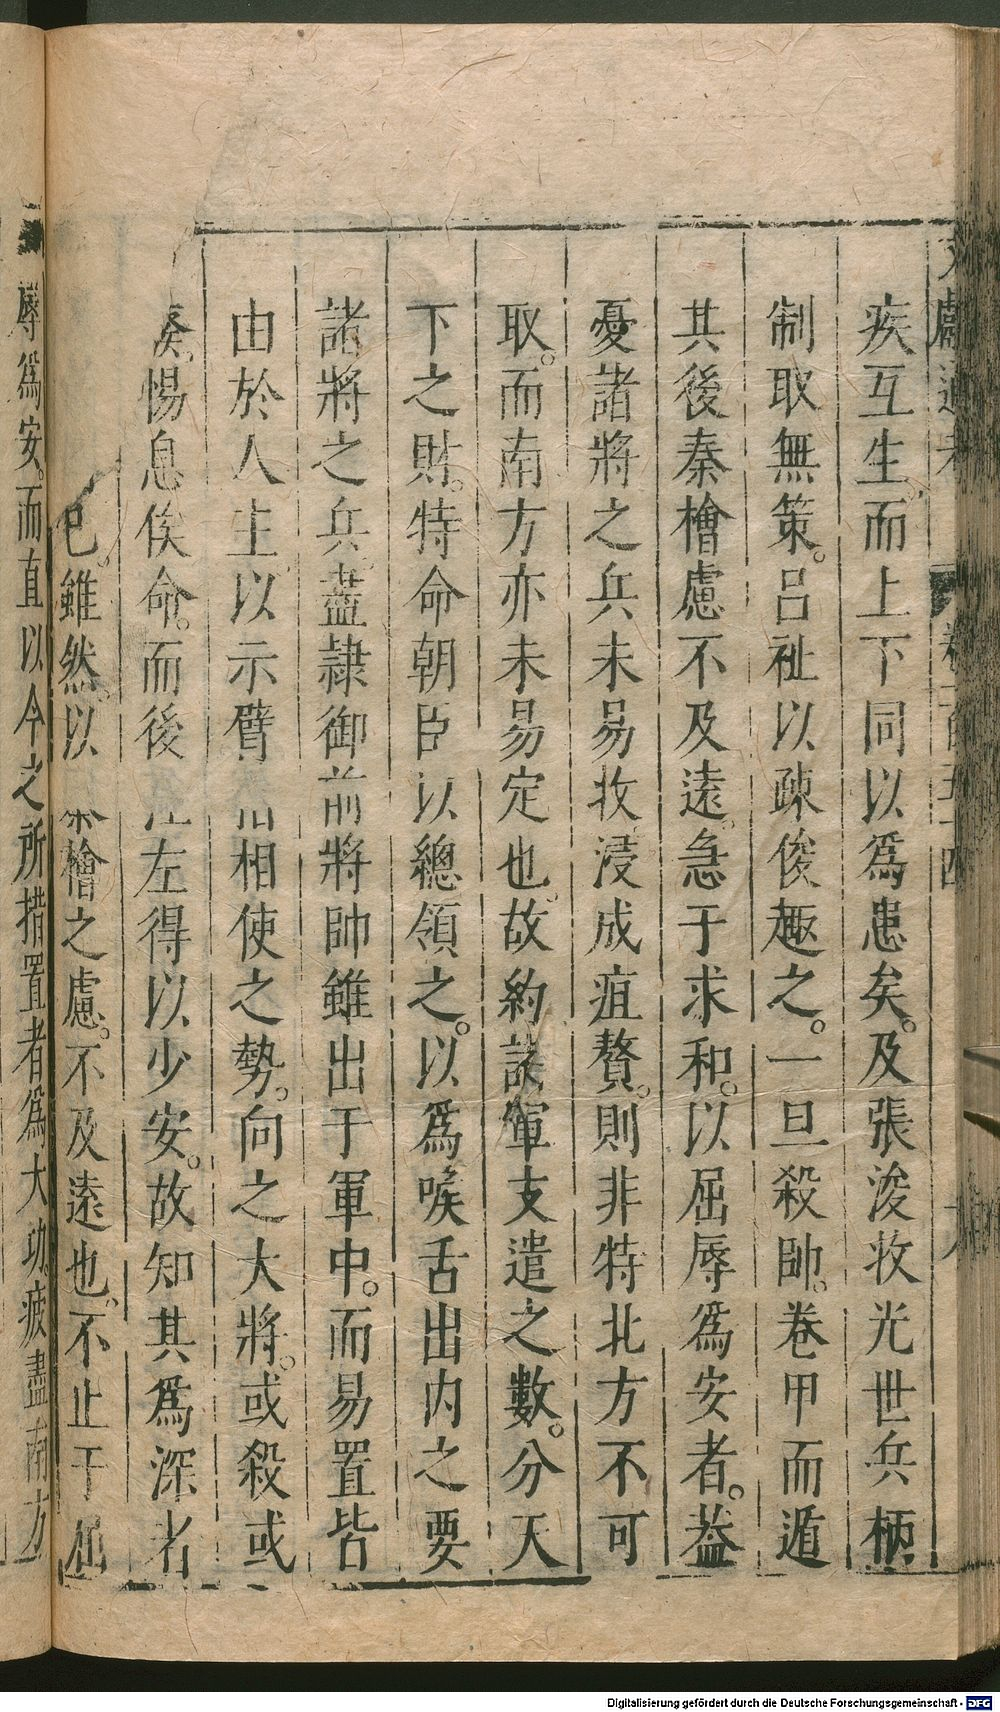 疾互生而上下同以爲患矣及張浚收光世兵柄
制取無策。呂祉以疎俊趣之。一旦殺帥。卷甲而遁
其後秦檜慮不及遠。急于求和。以屈辱爲安者。葢
憂諸將之兵未易收浸成疽贅。則非特北方不可
取。而南方亦未易定也。故約諸軍支遣之數。分天
下之財。特命朝臣以總領之。以爲喉舌出内之要
諸將之兵盡隷御前將帥雖出于軍中。而易置皆
由於人主以示臂相使之勢。向之大將。或殺或
惕息俟命。而後左得以少安。故知其爲深者
已。雖然。以檜之慮。不及遠也。不止于屈
辱爲安。而直以今之所措置者爲大功疲盡南方
Digitalisierung gefördert durch die Deutsche Forschungsgemeinschaft - DFG